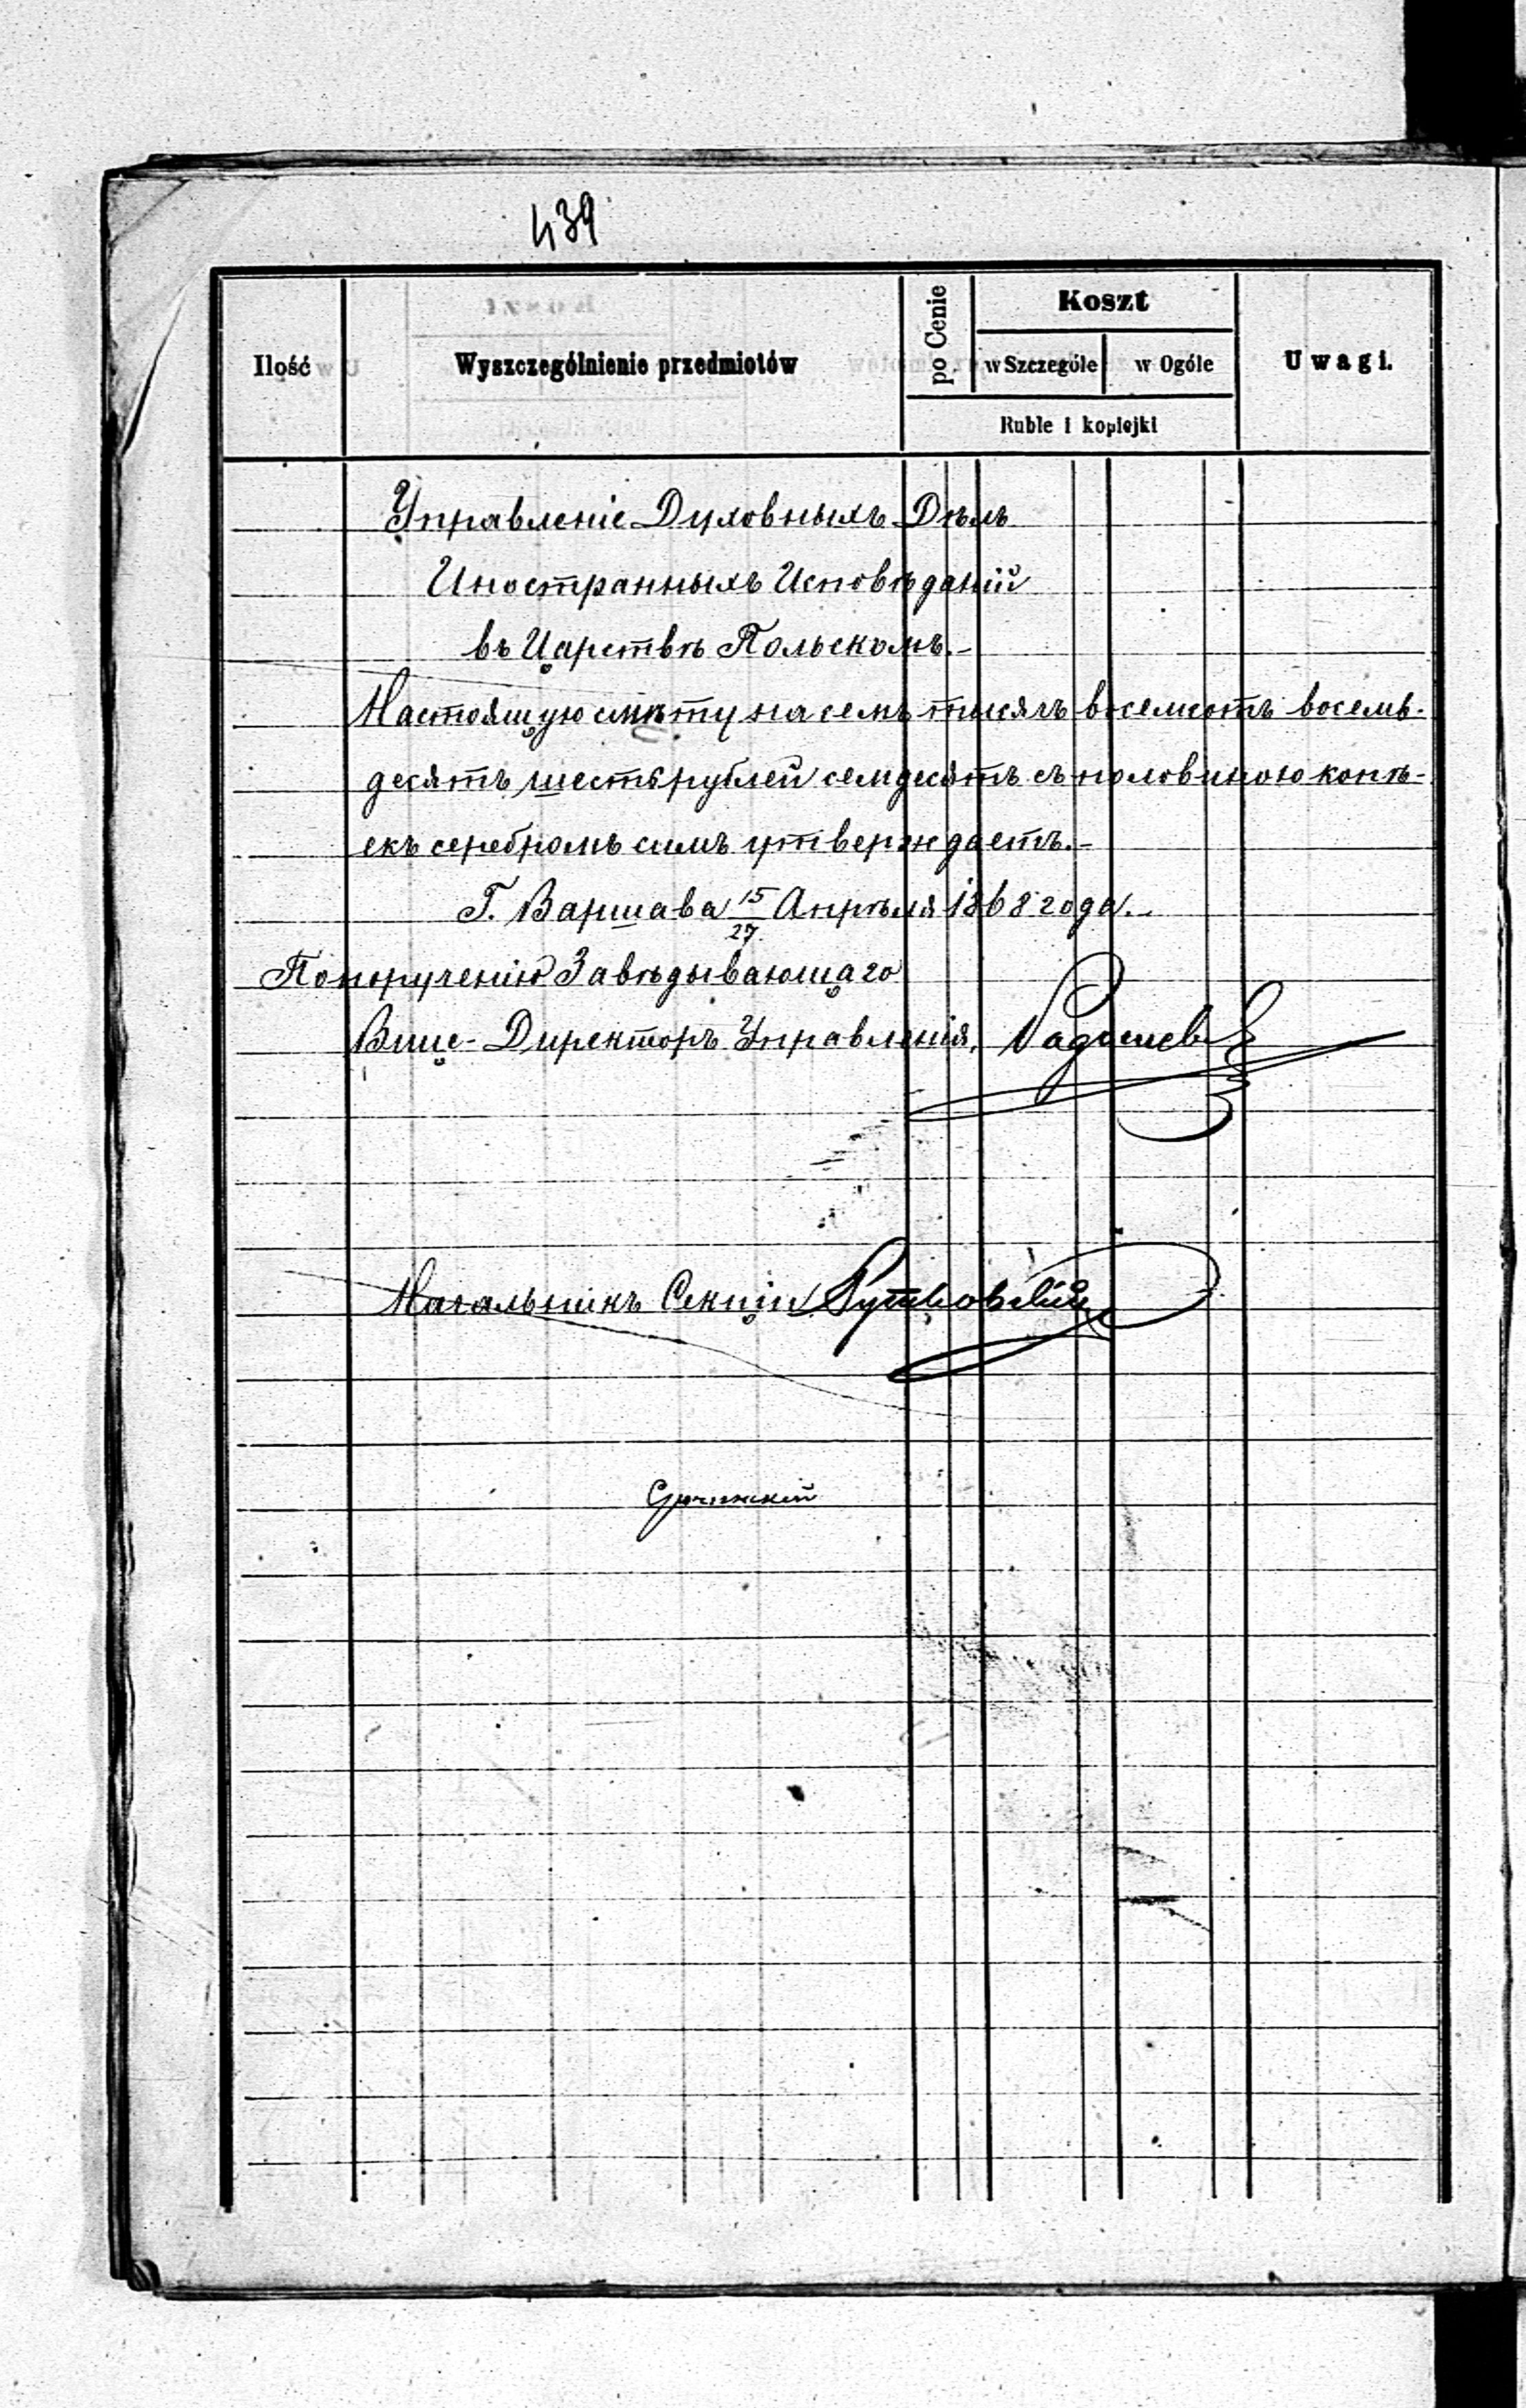 439
Ilość
Wyszczególnienie przedmiotów
po Cenie
Koszt
w Szczególe
w Ogóle
Ruble i kopiejki
Uwagi.
Управленіе Духовныхъ Дѣлъ
Иностранныхъ Исповѣданій
въ Царствѣ Польскомъ.-
Настоящую смѣту на семъ тысячъ восемсотъ восемь-
десятъ шесть рублей семдесятъ съ половиною копѣ-
екъ серебромъ симъ утверждаетъ.-
Г. Варшава 15/27 Апрѣля 1868 года.
По порученію Завѣдывающаго
Вице-Директоръ Управленія,
Начальникъ Секціи Рутковскій